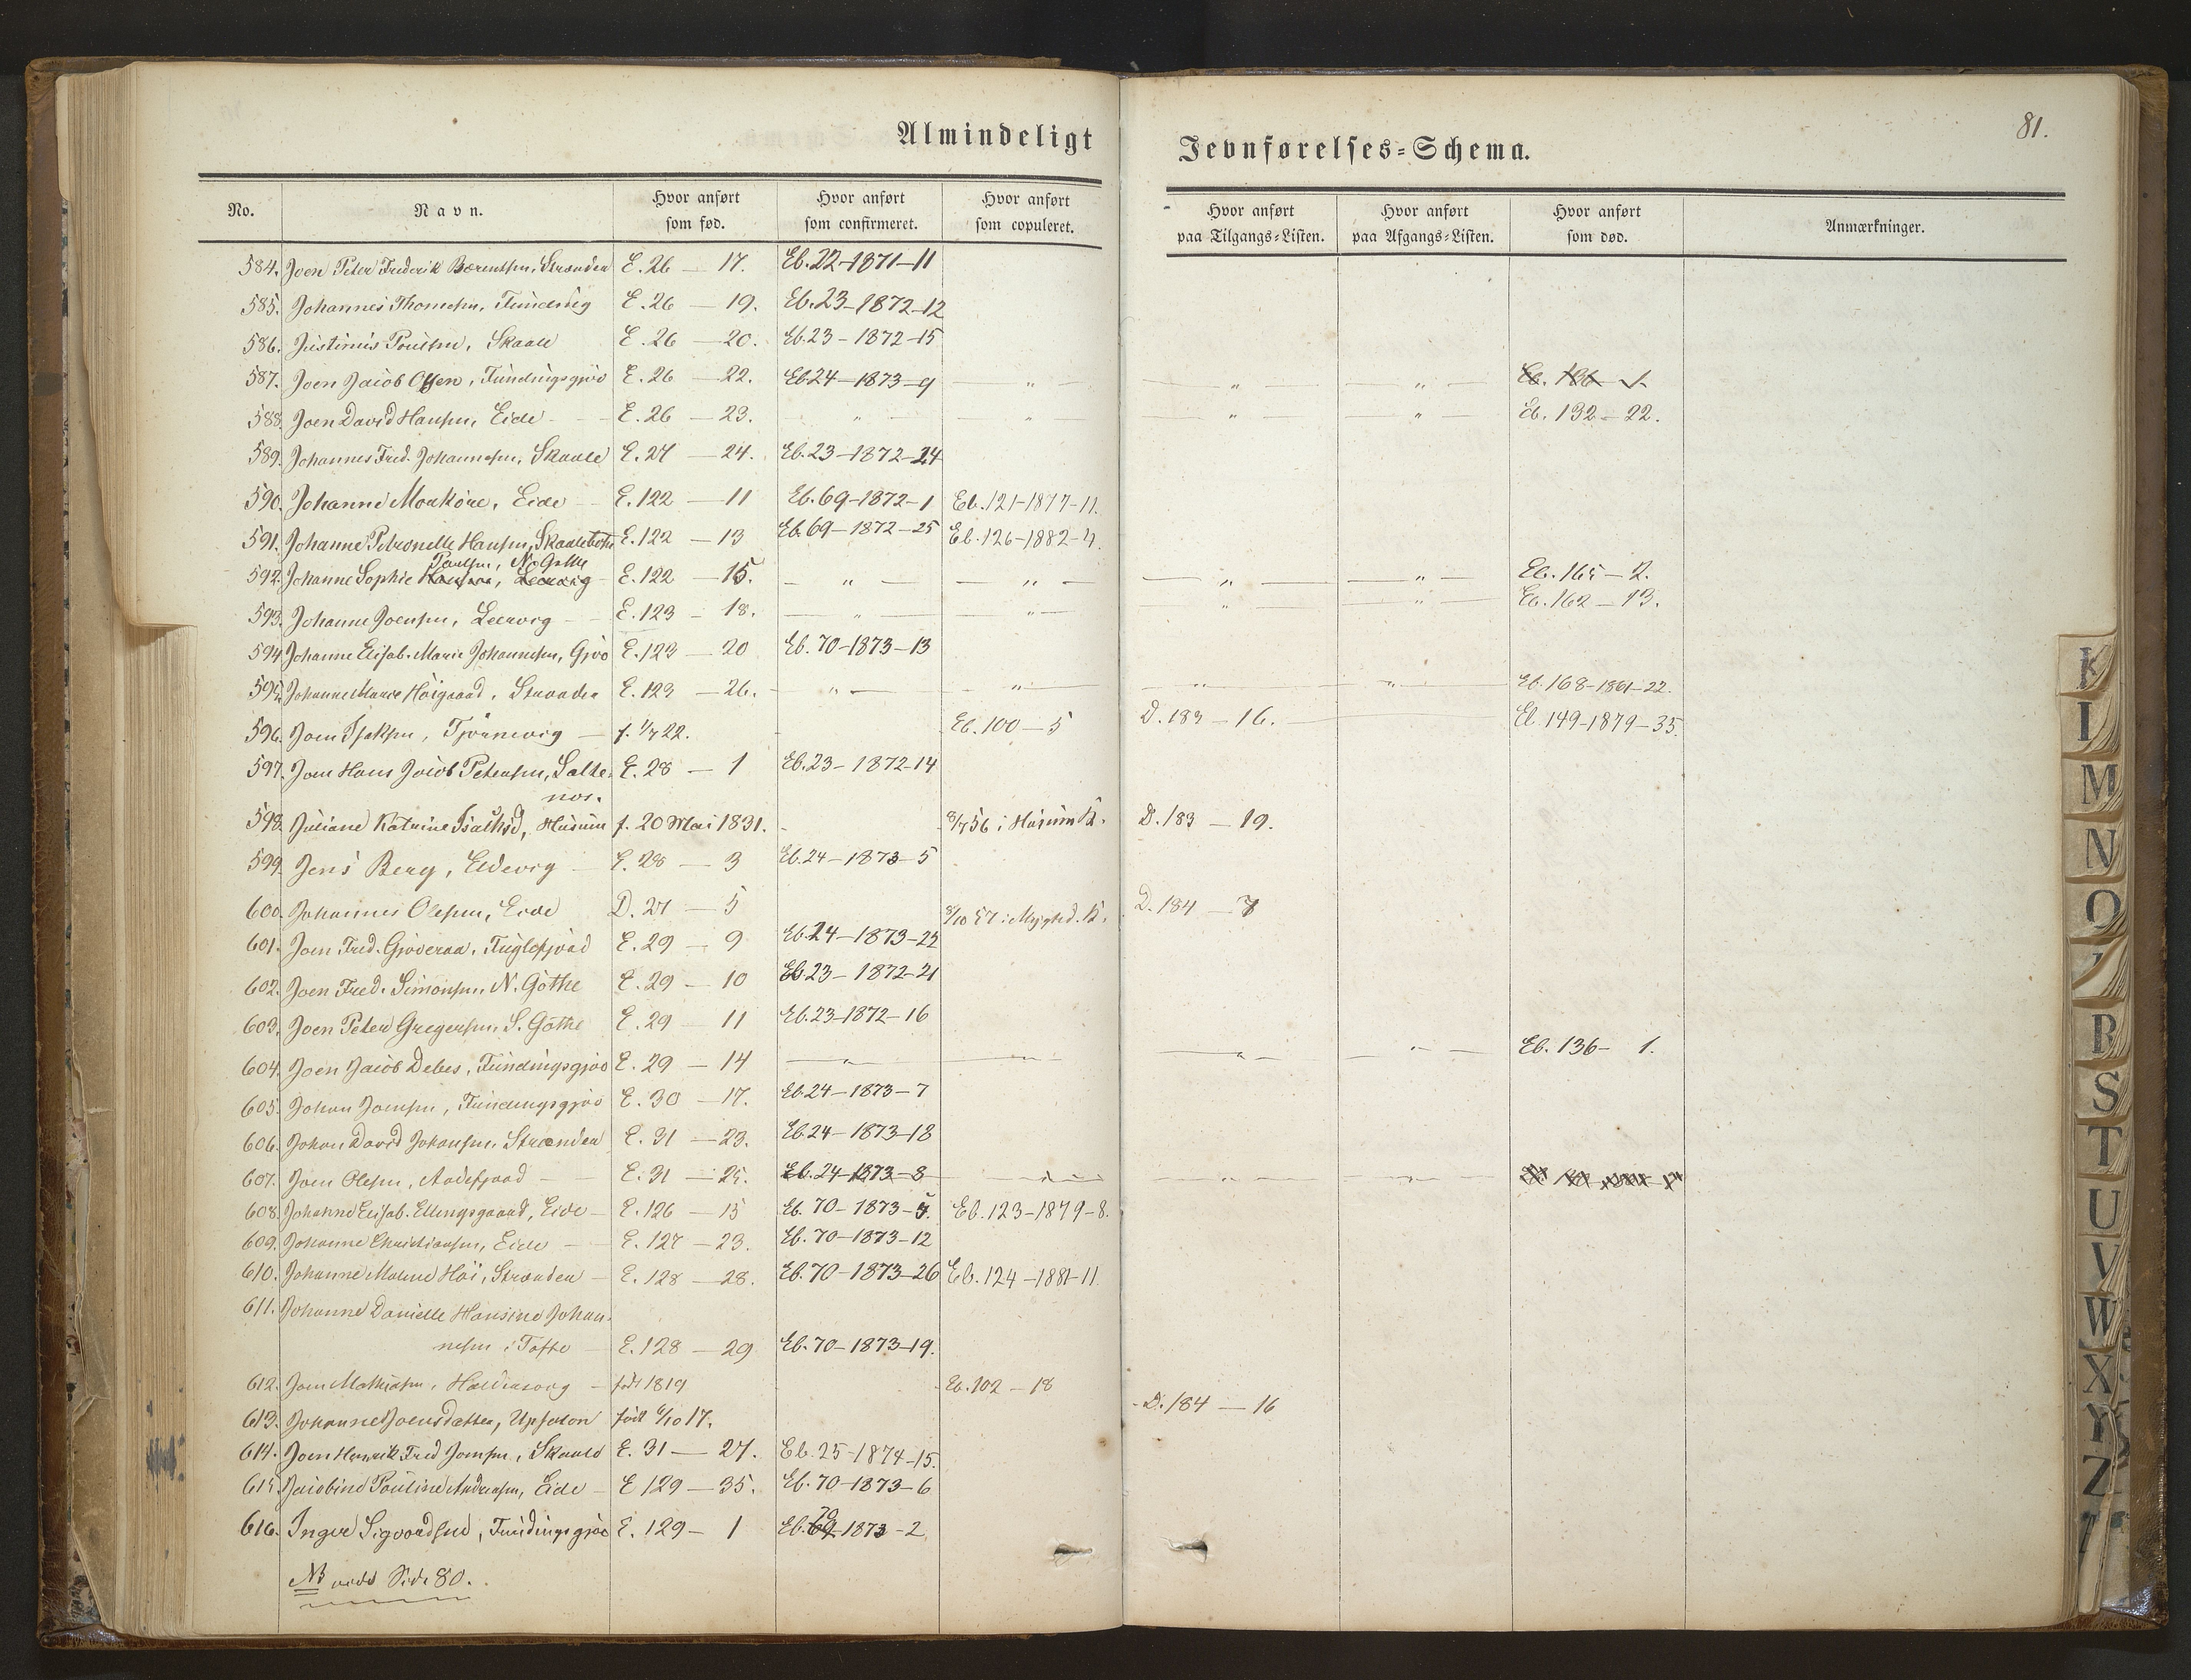 Almindeligt Jevnførelses-Schema.
81.
No. Navn. Hvor anført som fød. Hvor anført som confirmeret. Hvor anført som copuleret. Hvor anført paa Tilgangs-Listen. Hvor anført paa Afgangs-Listen. Hvor anført som død. Anmærkninger.
584. Joen Peter Frederik Bærentsen, Strænden E. 26 — 17. Eb. 22-1871-11
585. Johannes Thomasen, Funding E. 26 — 19. Eb. 23-1872-12
586. Justinus Poulsen, Skaale E. 26 — 20. Eb. 23-1872-15
587. Joen Jacob Olsen, Fundingsgjov E. 26 — 22. Eb 24-1873-9 — " — — " — — " — Eb. 136 — 1.
588. Joen David Hansen, Eide E. 26 — 23. — " — — " — — " — — " — Eb. 132 — 22.
589. Johannes Fred. Johannesen, Skaale E. 27 — 24. Eb. 23-1872-24
590. Johanne Morkøre, Eide E. 122 — 11 Eb. 69-1872-1 Eb. 121-1877-11.
591. Johanne Petronelle Hansen, Skaale E. 122 — 13 Eb 69-1872-25 Eb. 126-1882-4.
Poulsen, N. Gøthe
592. Johanne Sophie Hansen, Leervig E. 122 — 15. — " — — " — — " — — " — Eb. 165 — 2.
593. Johanne Joensen, Leervig E. 123 — 18. — " — — " — — " — — " — Eb. 162 — 13.
594. Johanne Elisab. Marie Johannesen, Gjov E. 123 — 20 Eb. 70-1873-13
595. Johanne Marie Høigaard, Strænden E. 123 — 26. — " — — " — — " — — " — Eb. 168-1861-22.
596. Joen Isaksen, Tjørnevig f. 1/7 22. Eb. 100 — 5 D. 183 — 16. Eb. 149-1879-35.
597. Joen Hans Jacob Petersen, Salte- E. 28 — 1 Eb. 23-1872-14
nes.
598. Juliane Katrine Isaksd, Husum f. 20 Mai 1831. 8/7 56 i Husum K. D. 183 — 19.
599. Jens Berg, Eldevig E. 28 — 3 Eb. 24-1873-5
600. Johannes Olesen, Eide D. 27 — 5 8/10 57 i K. D. 184 — 7
601. Joen Fred. Gjoveraa, Fuglefjord E. 29 — 9 Eb. 24-1873-22
602. Joen Fred. Simonsen, N. Gøthe E. 29 — 10 Eb. 23-1872-21
603. Joen Peter Gregersen, S. Gøthe E. 29 — 11 Eb. 23-1872-16
604. Joen Jacob Debes, Fundingsgjov E. 29 — 14 — " — — " — — " — — " — Eb. 136 — 1.
605. Johan Joensen, Fundingsgjov E. 30 — 17. Eb. 24-1873-7
606. Johan David Johansen, Strænden E. 31 — 23. Eb. 24-1873-18
607. Joen Olesen, Andefjord E. 31 — 25. Eb. 24-1873-8 — " — — " — — " —
608. Johanne Elisab. Ellingsgaard, Eide E. 126 — 15 Eb. 70-1873-5. Eb. 123-1879-8.
609. Johanne Christiansen, Eide E. 127 — 23. Eb. 70-1873-12
610. Johanne Malene Høi, Strænden E. 128 — 28. Eb. 70-1873-26 Eb. 124-1881-11
611. Johanne Danielle Hansine Johan-
nesen i Tofte E. 128 — 29 Eb. 70-1873-19.
612. Joen Mathiasen, Haldersvig født 1819 Eb. 102 — 18
613. Johanne Joensdatter, født 6/10 17. D. 184 — 16
614. Joen Henrik Fred Joensen, Skaale E. 31 — 27. Eb. 25-1874-15.
615. Jacobine Pouline Andreasen, Eide E 129 — 35. Eb. 70-1873-6
616. Inger Sigvardsen, Fundingsgjov E. 129 — 1 Eb. 69 70 1873-2
NB vide Side 80.
K
I
M
N
O
R
S
T
U
V
W
X
Y
Z